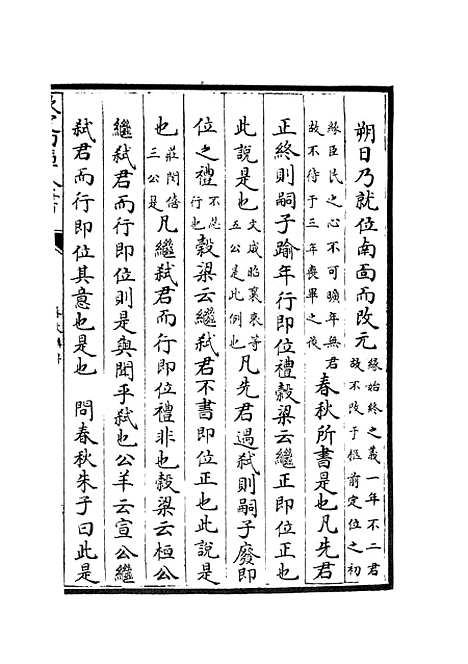 朔日乃就位南面而改元緣始終之義一年不二君故不改于柩前定位之初
緣臣民之心不可曠年無君故不待于三年喪畢之後春秋所書是也凡先君
正終則嗣子踰年行即位禮穀梁云繼正即位正也
此說是也文成昭襄哀等五公是此例也凡先君遇弑則嗣子廢即
位之禮不忍行也穀梁云繼弑君不書即位正也此說是
也莊閔僖三公是凡繼弑君而行即位禮非也穀梁云桓公
繼弑君而行即位則是與聞乎弑也公羊云宣公繼
弑君而行即位其意也是也 問春秋朱子曰此是